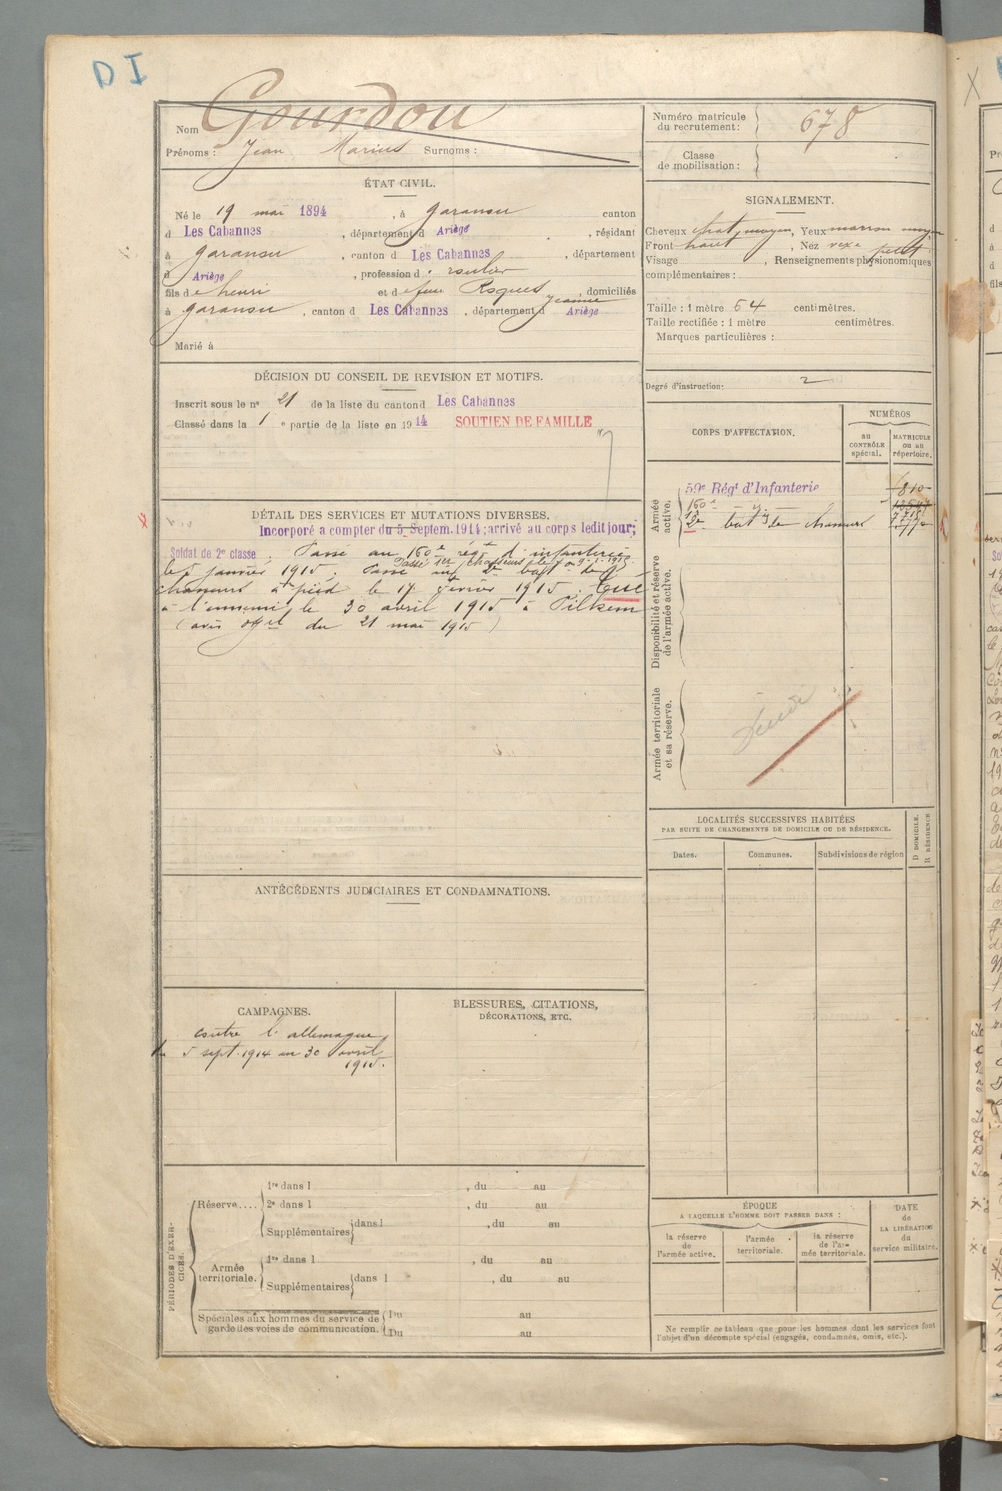 DI
Nom Gourdou
Prénoms : Jean Marius Surnoms :
Numéro matricule du recrutement : 678
Classe de mobilisation :
ÉTAT CIVIL.
Né le 19 mai 1894, à garanou canton
d Les Cabannes, département d Ariège, résidant
à garanou, canton d Les Cabannes, département
d Ariège, profession d
fils de henri et de feue Jeanne, domiciliés
à garanou, canton d Les Cabannes, département d Ariège
Marié à
SIGNALEMENT.
Cheveux chat. moyen, Yeux marron moyen
Front haut, Nez petit
Visage, Renseignements physionomiques
complémentaires :
Taille : 1 mètre 64 centimètres.
Taille rectifiée : 1 mètre centimètres.
Marques particulières :
Degré d'instruction: 2
DÉCISION DU CONSEIL DE REVISION ET MOTIFS.
Inscrit sous le n° 21 de la liste du canton d Les Cabannes
Classé dans la 1 e partie de la liste en 1914 SOUTIEN DE FAMILLE
CORPS D'AFFECTATION.
NUMÉROS
au CONTRÔLE spécial.
MATRICULE ou au répertoire.
Armée active.
59e Régt d'Infanterie
160e
bat de chasseurs
Disponibilité et réserve de l'armée active.
Armée territoriale et sa réserve.
DÉTAIL DES SERVICES ET MUTATIONS DIVERSES.
Incorporé a compter du 5 Septem. 1914; arrivé au corps ledit jour;
Soldat de 2e classe. Passé au 160e régt d'infanterie
Passé 1er chasseurs
le 5 janvier 1915. Passé au 2e bat de
chasseurs à pied le 17 février 1915. Tué
à l'ennemi le 30 avril 1915 à Pilkem
(avis offel du 21 mai 1915)
LOCALITÉS SUCCESSIVES HABITÉES
PAR SUITE DE CHANGEMENTS DE DOMICILE OU DE RÉSIDENCE.
Dates.
Communes.
Subdivisions de région
D DOMICILE.
R RÉSIDENCE
ANTÉCÉDENTS JUDICIAIRES ET CONDAMNATIONS.
CAMPAGNES.
contre l'allemagne
du 5 sept. 1914 au 30 avril
1915.
BLESSURES, CITATIONS,
DÉCORATIONS, ETC.
PÉRIODES D'EXERCICES.
Réserve....
1re dans l, du au
2e dans l, du au
Supplémentaires dans l, du au
Armée territoriale.
1re dans l, du au
Supplémentaires dans l, du au
Spéciales aux hommes du service de garde des voies de communication.
Du au
Du au
ÉPOQUE
A LAQUELLE L'HOMME DOIT PASSER DANS :
la réserve de l'armée active.
l'armée territoriale.
la réserve de l'armée territoriale.
DATE de LA LIBÉRATION du service militaire.
Ne remplir ce tableau que pour les hommes dont les services font
l'objet d'un décompte spécial (engagés, condamnés, omis, etc.).